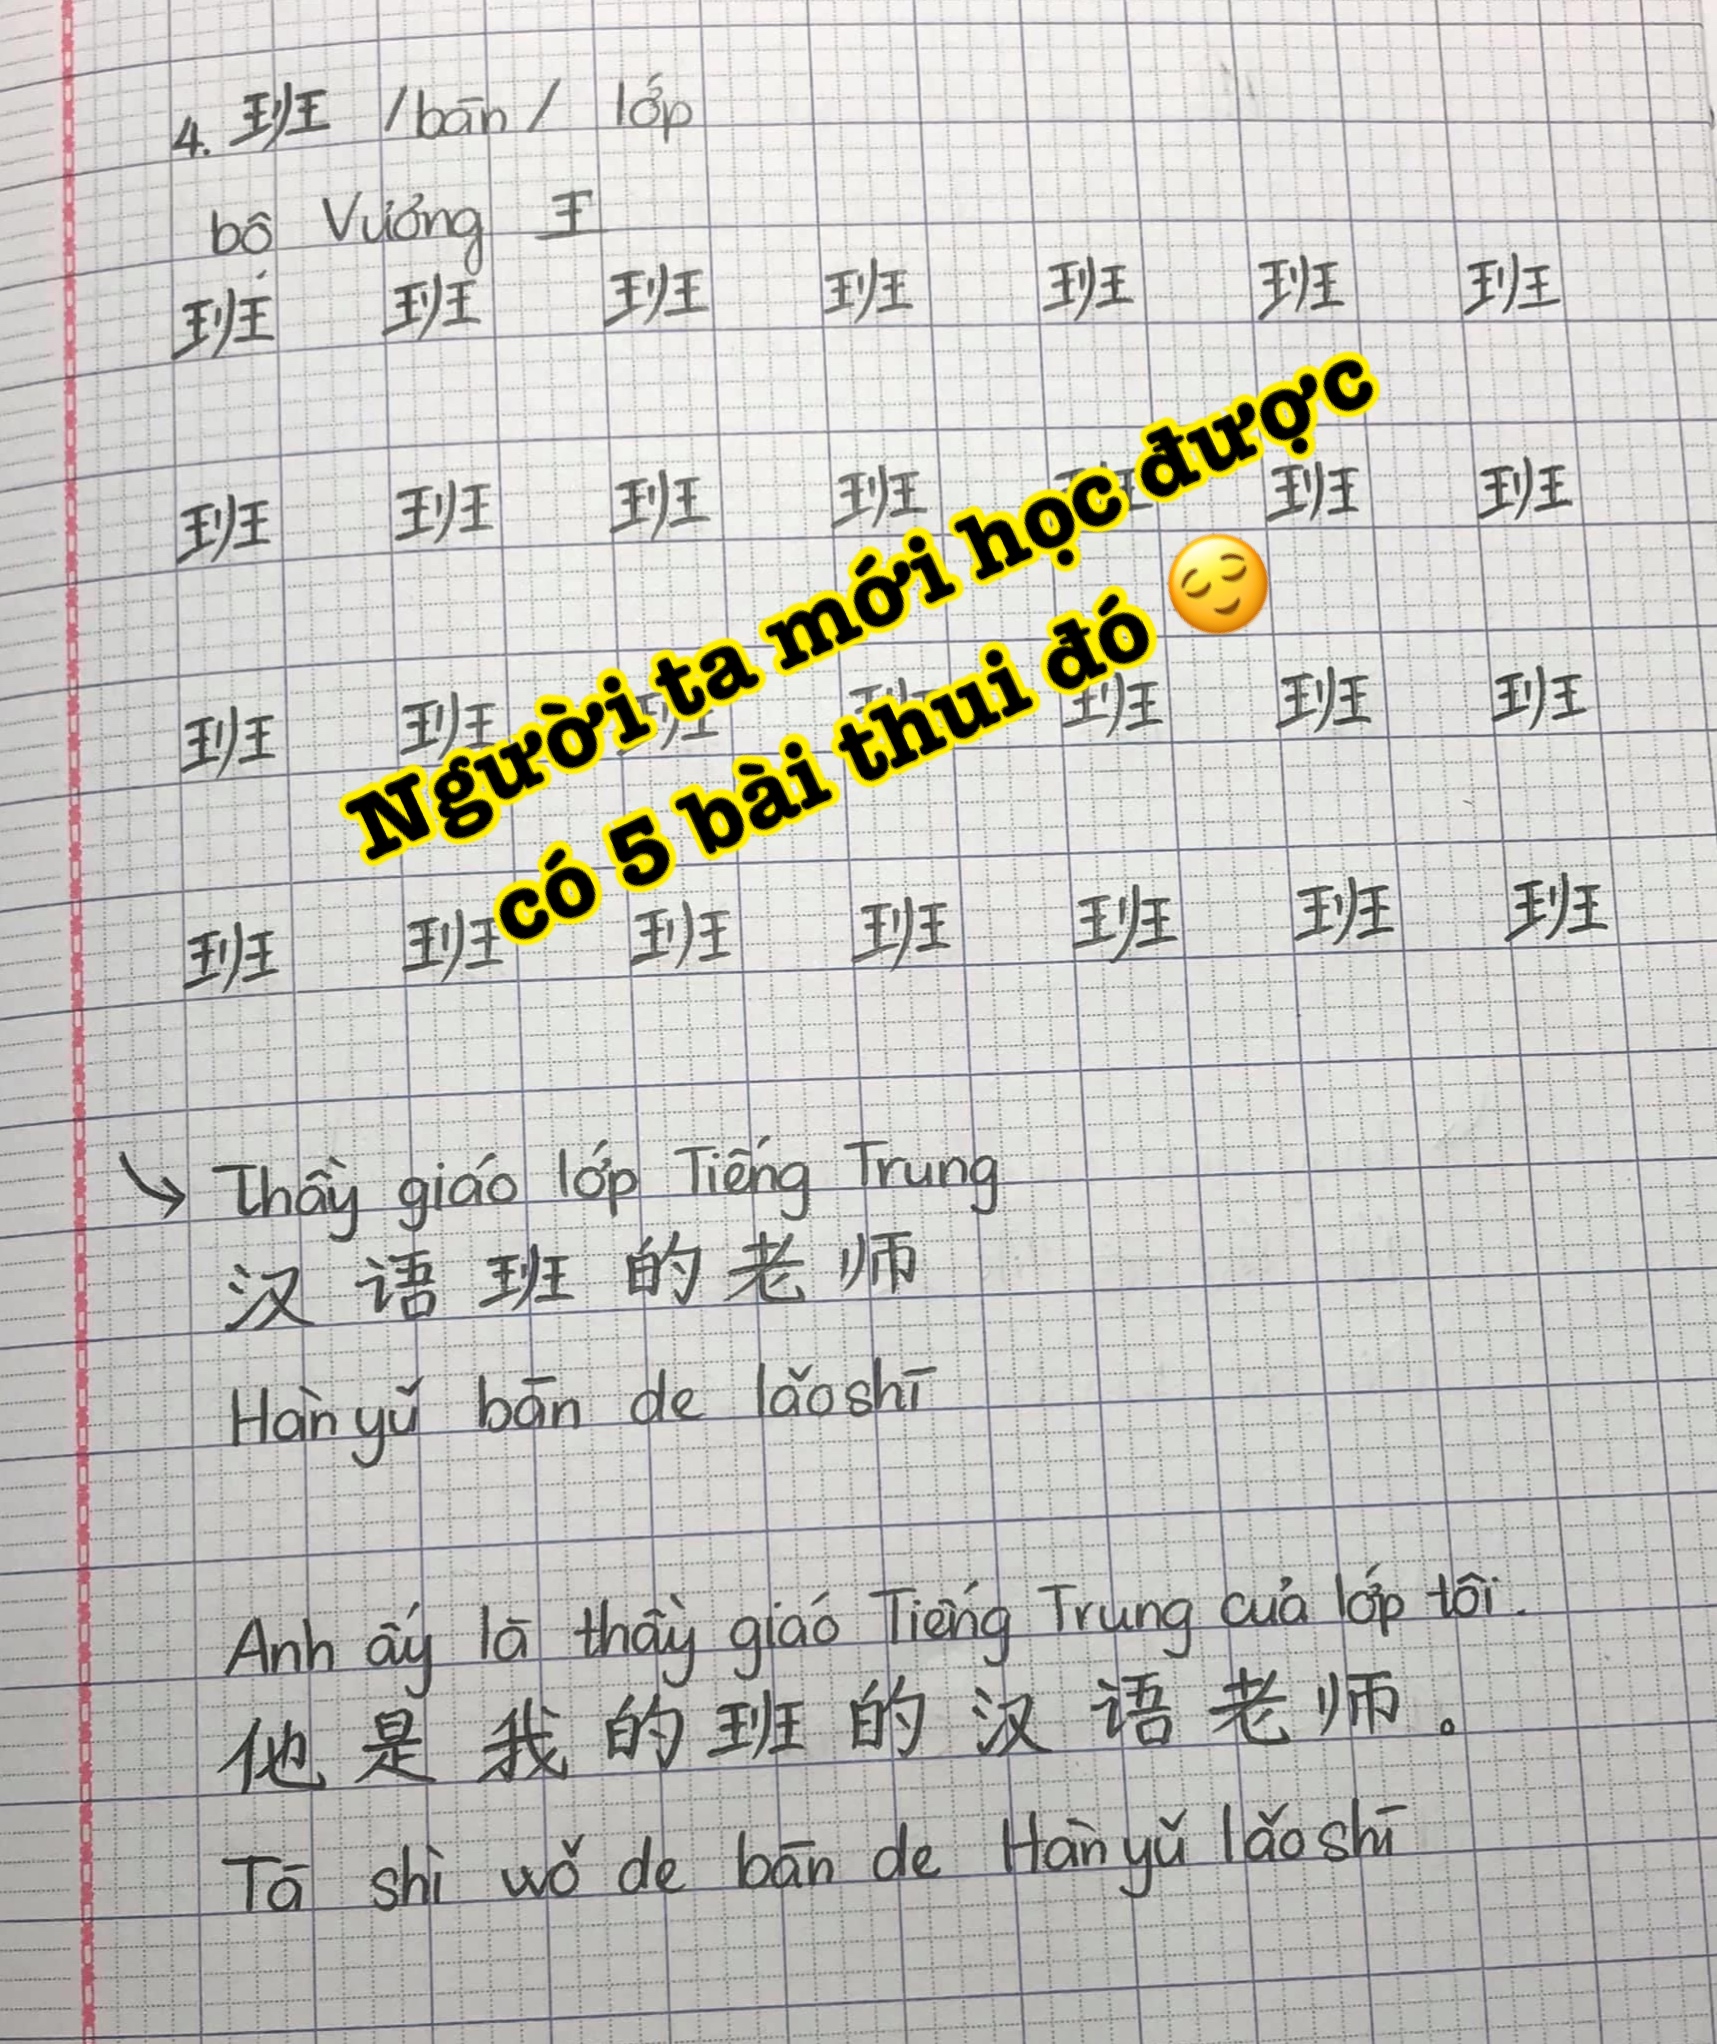 4. 班 /bān/ lớp
bộ Vương 王
班 班 班 班 班 班 班
班 班 班 班 班 班 班
班 班 班 班 班 班 班
班 班 班 班 班 班 班
Người ta mới học được
có 5 bài thui đó 😌
Thầy giáo lớp Tiếng Trung
汉 语 班 的 老 师
Hànyǔ bān de lǎoshī
Anh ấy là thầy giáo Tiếng Trung của lớp tôi.
他 是 我 的 班 的 汉 语 老 师 。
Tā shì wǒ de bān de Hànyǔ lǎoshī